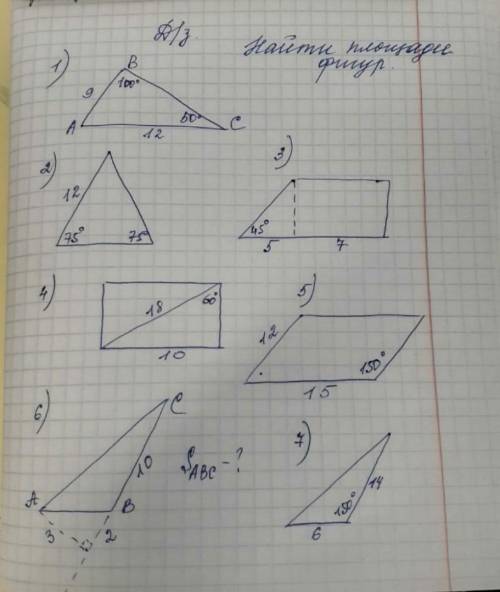 Д/з.
Найти площади
фигур.
1)
B
9
100°
50°
A
12
C
2)
12
75°
75°
3)
45°
5
7
4)
18
60°
10
5)
12
150°
15
6)
C
10
S_ABC - ?
A
B
3
2
7)
150°
14
6